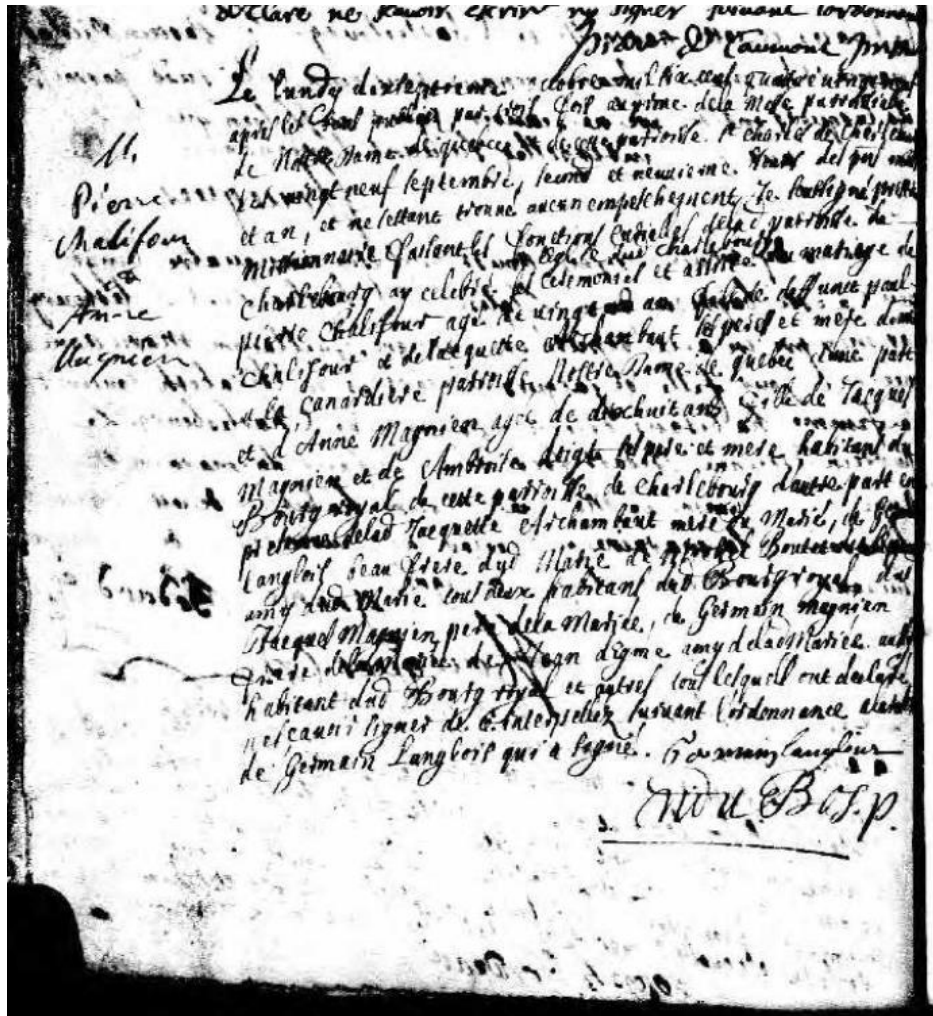 declare ne scavoir escrire ny signer suivant l'ordonnan
Le lundy dixseptieme octobre mil six cent quatre vingt
apres les bans publiez par trois fois au prosne de la Messe parroissiale
de Nostre Dame de quebec et de cette parroisse St charles de
le vingt neuf septembre, second et neuvieme jours des pnt mois
et an, et ne sestant trouvé aucun empeschement Je soubsigné prestre
Missionnaire faisant les fonctions Curialles de lad. parroisse de
Charlebourg ay celebré les ceremonies et assisté au mariage de
pierre Chalifour agé de vingt un an fils de deffunct paul
Chalifour et de Jacquette Archambaut ses peres et mere dem.
a la Canardiere parroisse Nostre Dame de quebec d'une part
et d'Anne Magnien agee de dixhuit ans fille de Jacques
Magnien et de Ambroise doigt ses pere et mere habitant du
Bourgroyal de cette parroisse de Charlebourg d'autre part en
presence de lad Jacquette Archambaut mere du Marié, de
Langlois beau frere dud Marié de
amy dud Marié tous deux habitans dud Bourgroyal dud
Jacques Magnien pere de la Mariée, de Germain Magnien
frere de la de Jean digme amy de lad Mariée aussy
habitant dud Bourg royal et autres tous lesquels ont declaré
ne scauoir signer de ce interpellez suivant l'ordonnance
de Germain Langlois qui a signé. Germain langlois
du Bos. p.
M.
Pierre
Chalifour
et
Anne
Magnien